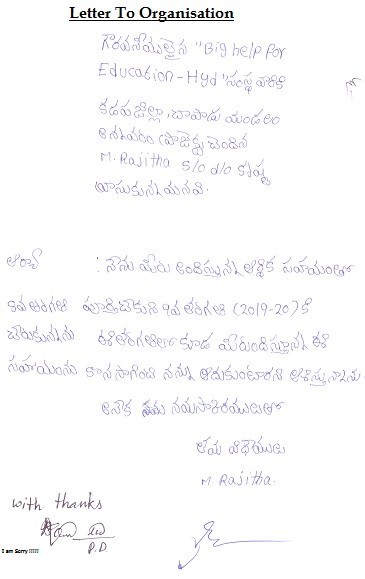 Letter To Organisation
గౌరవనీయులైన "Big help for
Education - Hyd" సంస్థ వారికి
కడప జిల్లా, చాపాడు మండలం
అన్నవరం ప్రాజెక్టు చెందిన
M. Rajitha S/o d/o కృష్ణ
వ్రాసుకున్న మనవి.
ఆర్యా : నేను మీరు అందిస్తున్న ఆర్థిక సహాయంతో
8వ తరగతి పూర్తిచేసుకుని 9వ తరగతి (2019-20) కి
చేరుకున్నాను ఈ తరగతిలో కూడ మీరందిస్తున్న ఈ
సహాయంను కొనసాగించి నన్ను ఆదుకుంటారని ఆశిస్తున్నాను
అనేక నమ నమస్కారములతో
తమ విధేయులు
M. Rajitha.
with thanks
P.D.
I am Sorry !!!!!